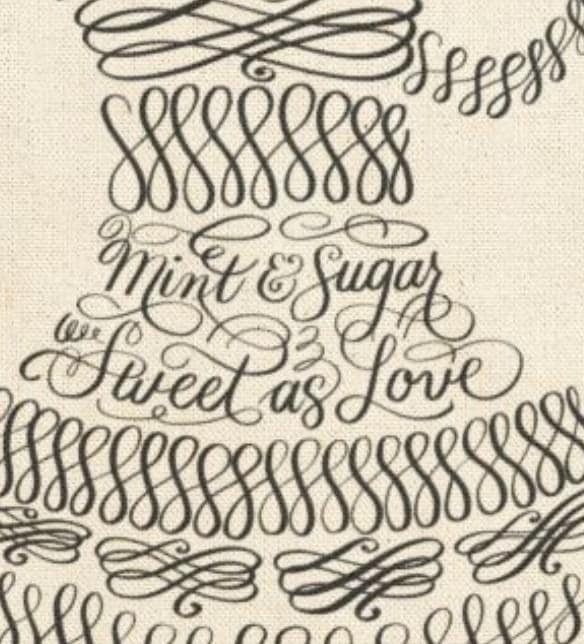 Mint & Sugar
Sweet as Love